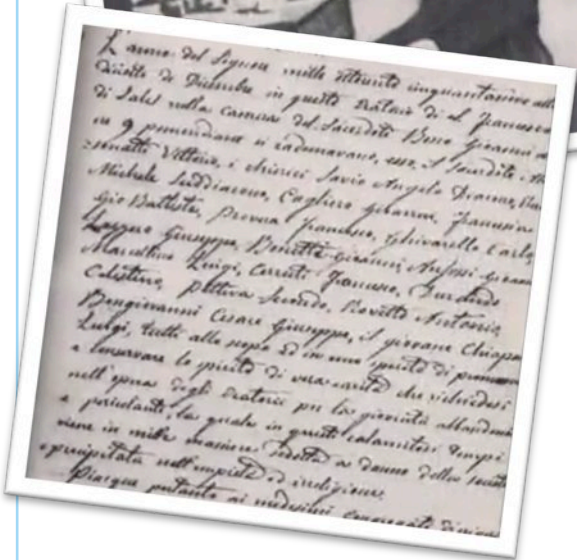 L'anno del Signore mille ottocento cinquantanove alli
diciotto di Dicembre in questo Oratorio di S. Francesco
di Sales nella camera del Sacerdote Bosco Giovanni
ore 9 pomeridiane si radunavano, esso, il Sacerdote
Vittorio, i chierici Savio Angelo Diacono,
Michele Suddiacono, Cagliero Giovanni, Francesia
Gio Battista, Provera Francesco, Ghivarello Carlo,
Lazzero Giuseppe, Bonetti Giovanni, Anfossi
Marcellino Luigi, Cerruti Francesco, Durando
Celestino, Pettiva Secondo, Rovetto Antonio,
Bongiovanni Cesare Giuseppe, il giovane Chiapa
Luigi, tutti allo scopo ed in uno spirito di
e conservare lo spirito di vera carità che richiedesi
nell'opera degli Oratorii per la gioventù
e pericolante, la quale in questi calamitosi tempi
viene in mille maniere sedotta a danno della
e precipitata nell'empietà ed irreligione.
Piacque pertanto ai medesimi congregati